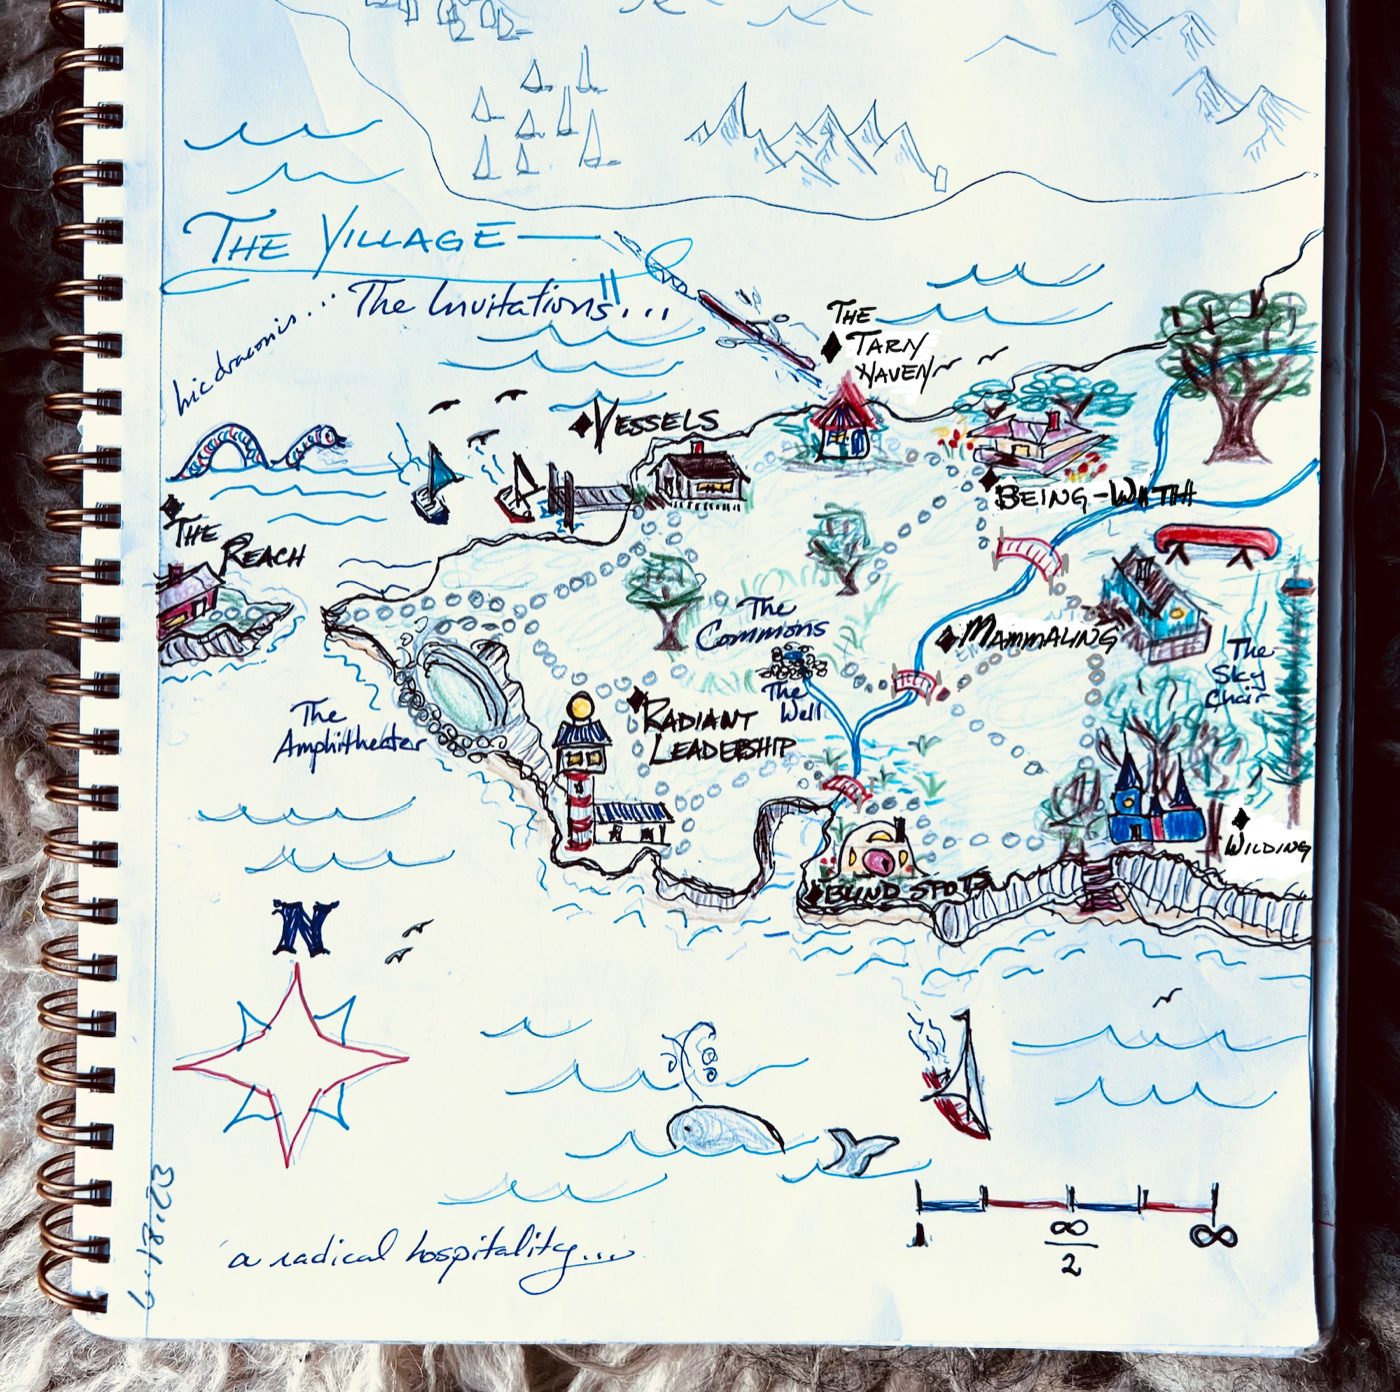 THE VILLAGE —
"The Invitations"...
hic draconis...
THE
TARN
HAVEN
VESSELS
THE
REACH
BEING-WITH
The
Commons
MAMMALING
The
Sky
Chair
The
Well
RADIANT
LEADERSHIP
The
Amphitheater
WILDING
BLIND SPOTS
N
1
∞
2
∞
a radical hospitality...